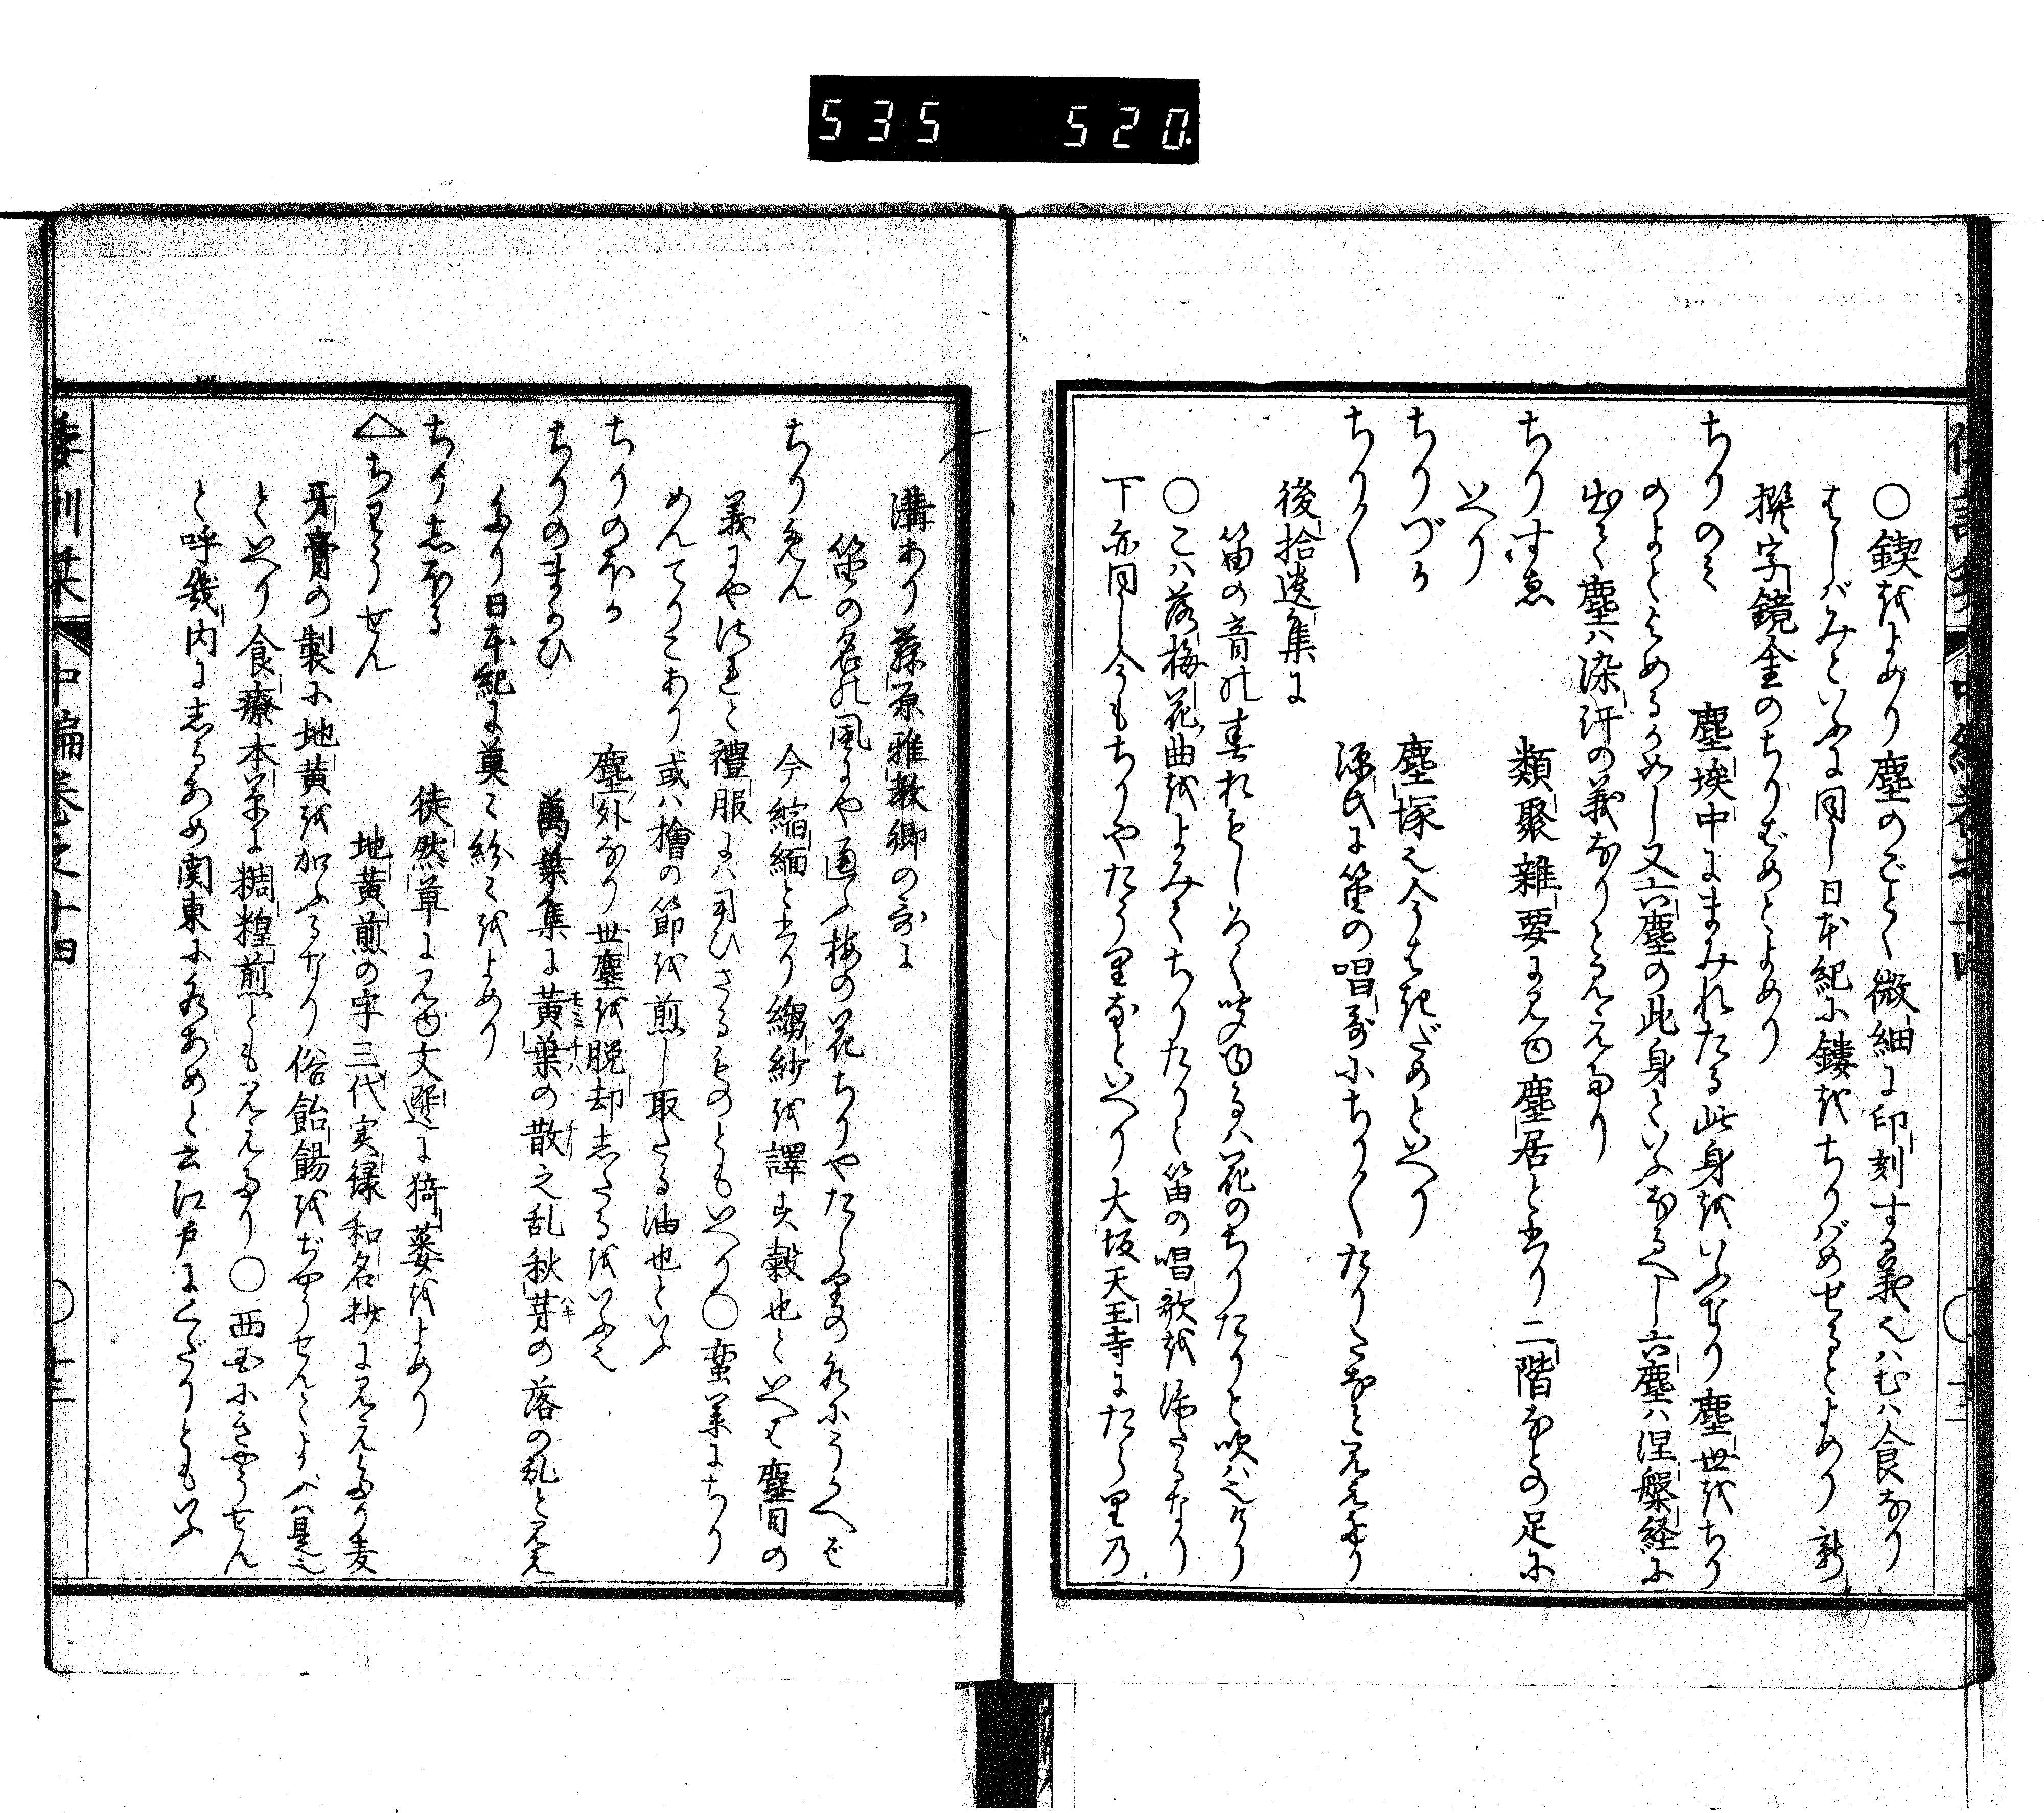 535 520
○鍥をよめり塵のごとく微細に印刻する義也ハむハ食なり
はしばみといふに同し日本紀に鏤をちりばめせるとよめり新
撰字鏡金のちりばめとよめり
ちりのミ 塵埃中にまみれたる此身をいふなり塵世をちり
のよとよめるか如し又六塵の此身といふなるへし六塵ハ涅槃経に
出て塵ハ染汙の義なりと見えたり
ちりすゑ 類聚雑要に見ゆ塵居と書り二階なとの足に
いへり
ちりづか 塵塚也今はきだめといへり
ちり〱 源氏に笛の唱哥にちり〱たりたなと見えたり
後拾遺集に
笛の音の春おもしろく聞ゆるハ花のちりたりと吹ハ也けり
○こハ落梅花曲をよみてちりたりと笛の唱歌を添たるなり
下亦同し今もちりやたり里なといへり大坂天王寺にたらり里乃
溝あり藤原雅教卿の哥に
笛の名の風にや通ふ梅の花ちりやたらりの水にうかへど
ちりめん 今縮緬と書り縐紗を譯す縠也といへは塵目の
義にやされと禮服にハ用ひさるものともいへり○蛮菜にちり
めんてりこあり或ハ檜の節を煎し取たる油也といふ
ちりのほか 塵外なり世塵を脱却したるをいふ也
ちりのまかひ 萬葉集に黄葉の散之乱秋芽の落の乱と見え
たり日本紀に奠〻紛〻をよめり
ちりしほる 徒然草に見ゆ文選に猗萎をよめり
△ちわうせん 地黄煎の字三代実録和名抄に見えたり麦
牙膏の製に地黄を加ふるなり俗飴餳をぢやうせんとよふハ是也
といへり食療本草に糊糧煎とも見えたり○西国にきやうせん
と呼畿内にしるあめ関東に水あめと云江戸にくだりともいふ
倭訓栞 中編巻之十四 ○ 十三